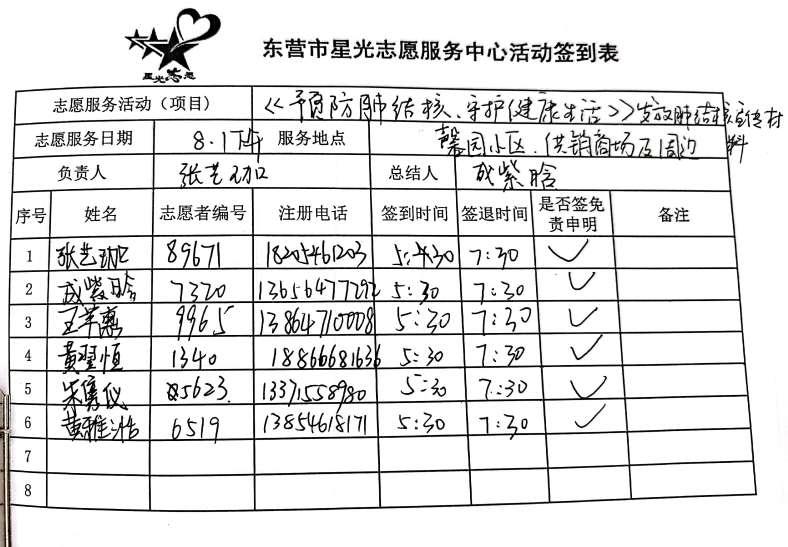 星光志愿
东营市星光志愿服务中心活动签到表
志愿服务活动（项目） 《预防肺结核、守护健康生活》发放肺结核宣传材料
志愿服务日期 8.1下午 服务地点 馨园小区、供销商场及周边
负责人 张艺珈 总结人 成紫晗
序号 姓名 志愿者编号 注册电话 签到时间 签退时间 是否签免责申明 备注
1 张艺珈 89671 18205461203 5:30 7:30 ✓
2 成紫晗 7320 13656477292 5:30 7:30 ✓
3 王 9965 13864710008 5:30 7:30 ✓
4 黄翌恒 1340 18866681636 5:30 7:30 ✓
5 仪 5623 13371558980 5:30 7:30 ✓
6 黄雅洁 6519 13854618171 5:30 7:30 ✓
7
8